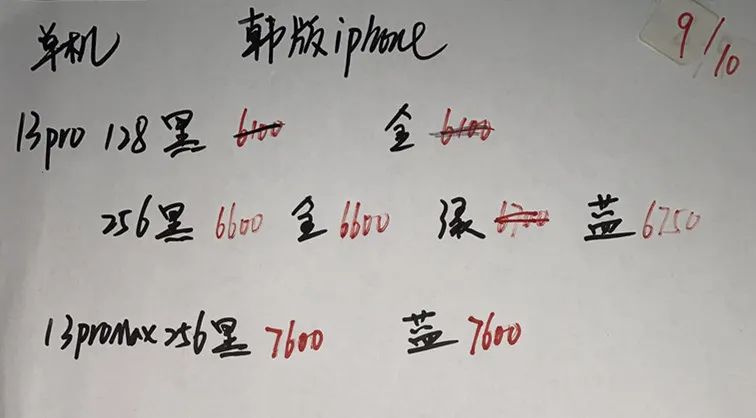 单机 韩版iphone 9/10
13pro 128黑 6100 金 6100
256黑 6600 金 6600 绿 6700 蓝 6750
13promax 256黑 7600 蓝 7600